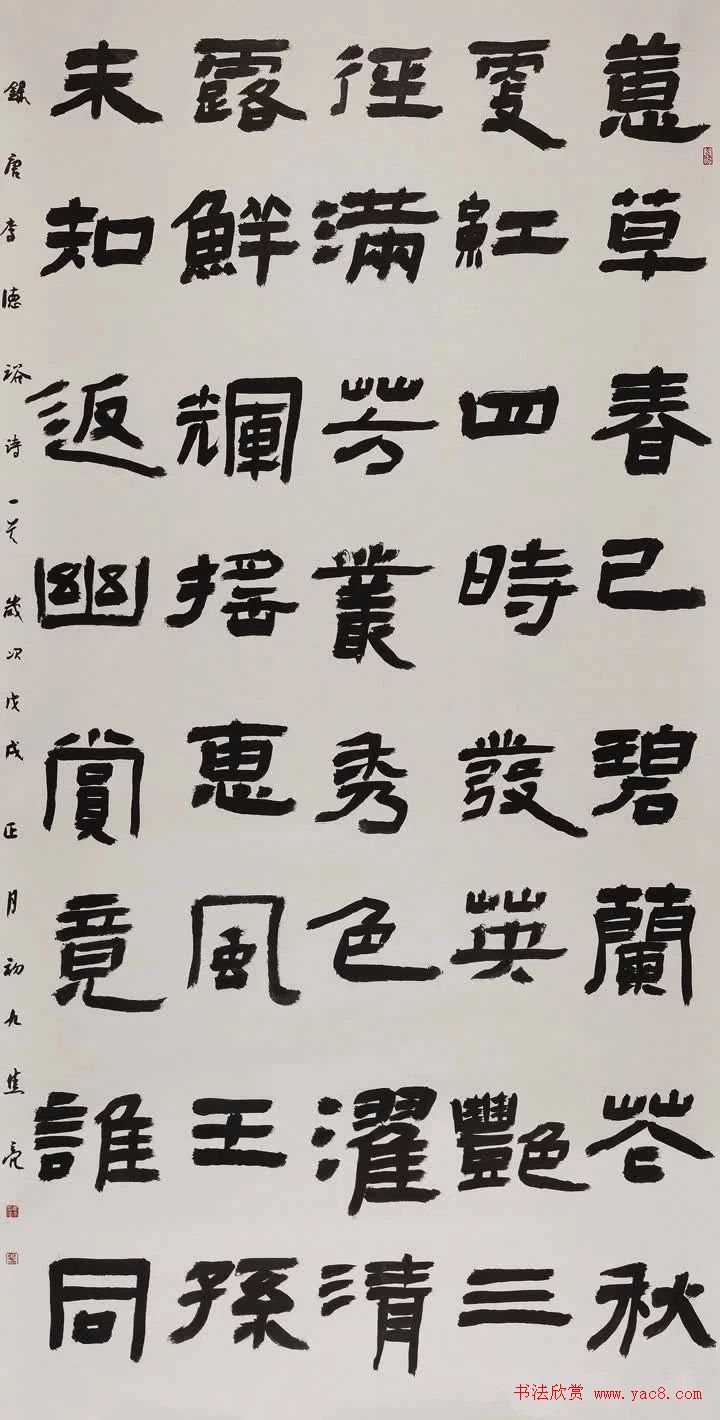 蕙草春已碧蘭花秋
更紅四時發英艷三
徑滿芳叢秀色濯清
露鮮輝搖惠風王孫
未知返幽賞竟誰同
錄唐李德裕詩一首歲次戊戌正月初九焦亮
书法欣赏 www.yac8.com